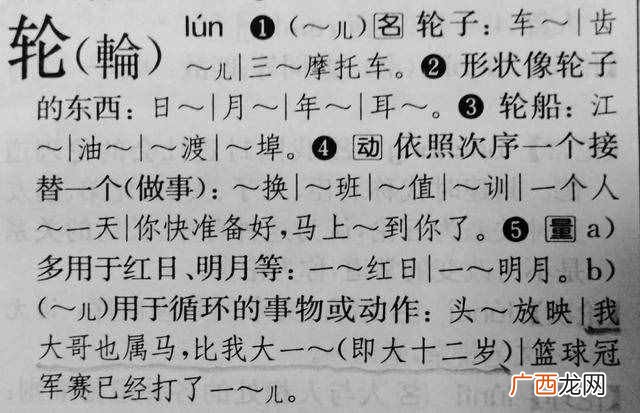 轮(輪) lún ❶(～儿)[名]轮子：车～|齿
～儿|三～摩托车。❷形状像轮子
的东西：日～|月～|年～|耳～。❸轮船：江
～|油～|～渡|～埠。❹[动]依照次序一个接
替一个(做事)：～换|～班|～值|～训|一个人
～一天|你快准备好,马上～到你了。❺[量]a)
多用于红日、明月等：一～红日|一～明月。b)
(～儿)用于循环的事物或动作：头～放映|我
大哥也属马,比我大一～(即大十二岁)|篮球冠
军赛已经打了一～儿。
广西龙网